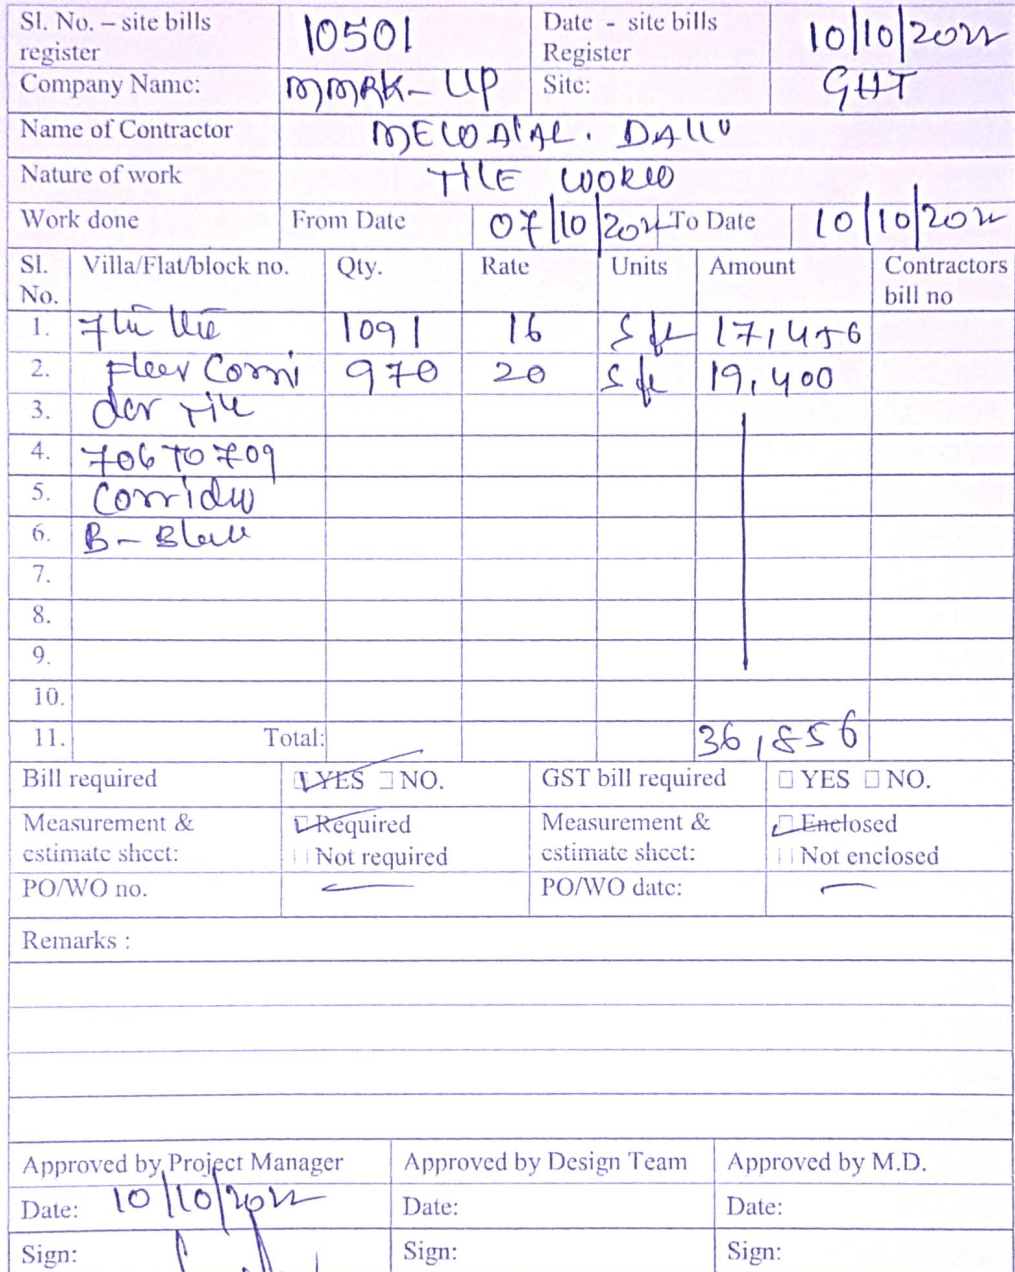 Sl. No. – site bills register 10501 Date - site bills Register 10/10/2022
Company Name: MMRK-UP Site: GHT
Name of Contractor
Nature of work TILE WORK
Work done From Date 07/10/2022 To Date 10/10/2022
Sl. No. Villa/Flat/block no. Qty. Rate Units Amount Contractors bill no
1. 1091 16 Sft 17,456
2. Floor Corri 970 20 Sft 19,400
3. dor Tile
4. 706 TO 709
5. Corridor
6. B-Block
7.
8.
9.
10.
11. Total: 36,856
Bill required YES NO. GST bill required YES NO.
Measurement & estimate sheet: Required Not required Measurement & estimate sheet: Enclosed Not enclosed
PO/WO no. PO/WO date:
Remarks :
Approved by Project Manager Approved by Design Team Approved by M.D.
Date: 10/10/2022 Date: Date:
Sign: Sign: Sign: